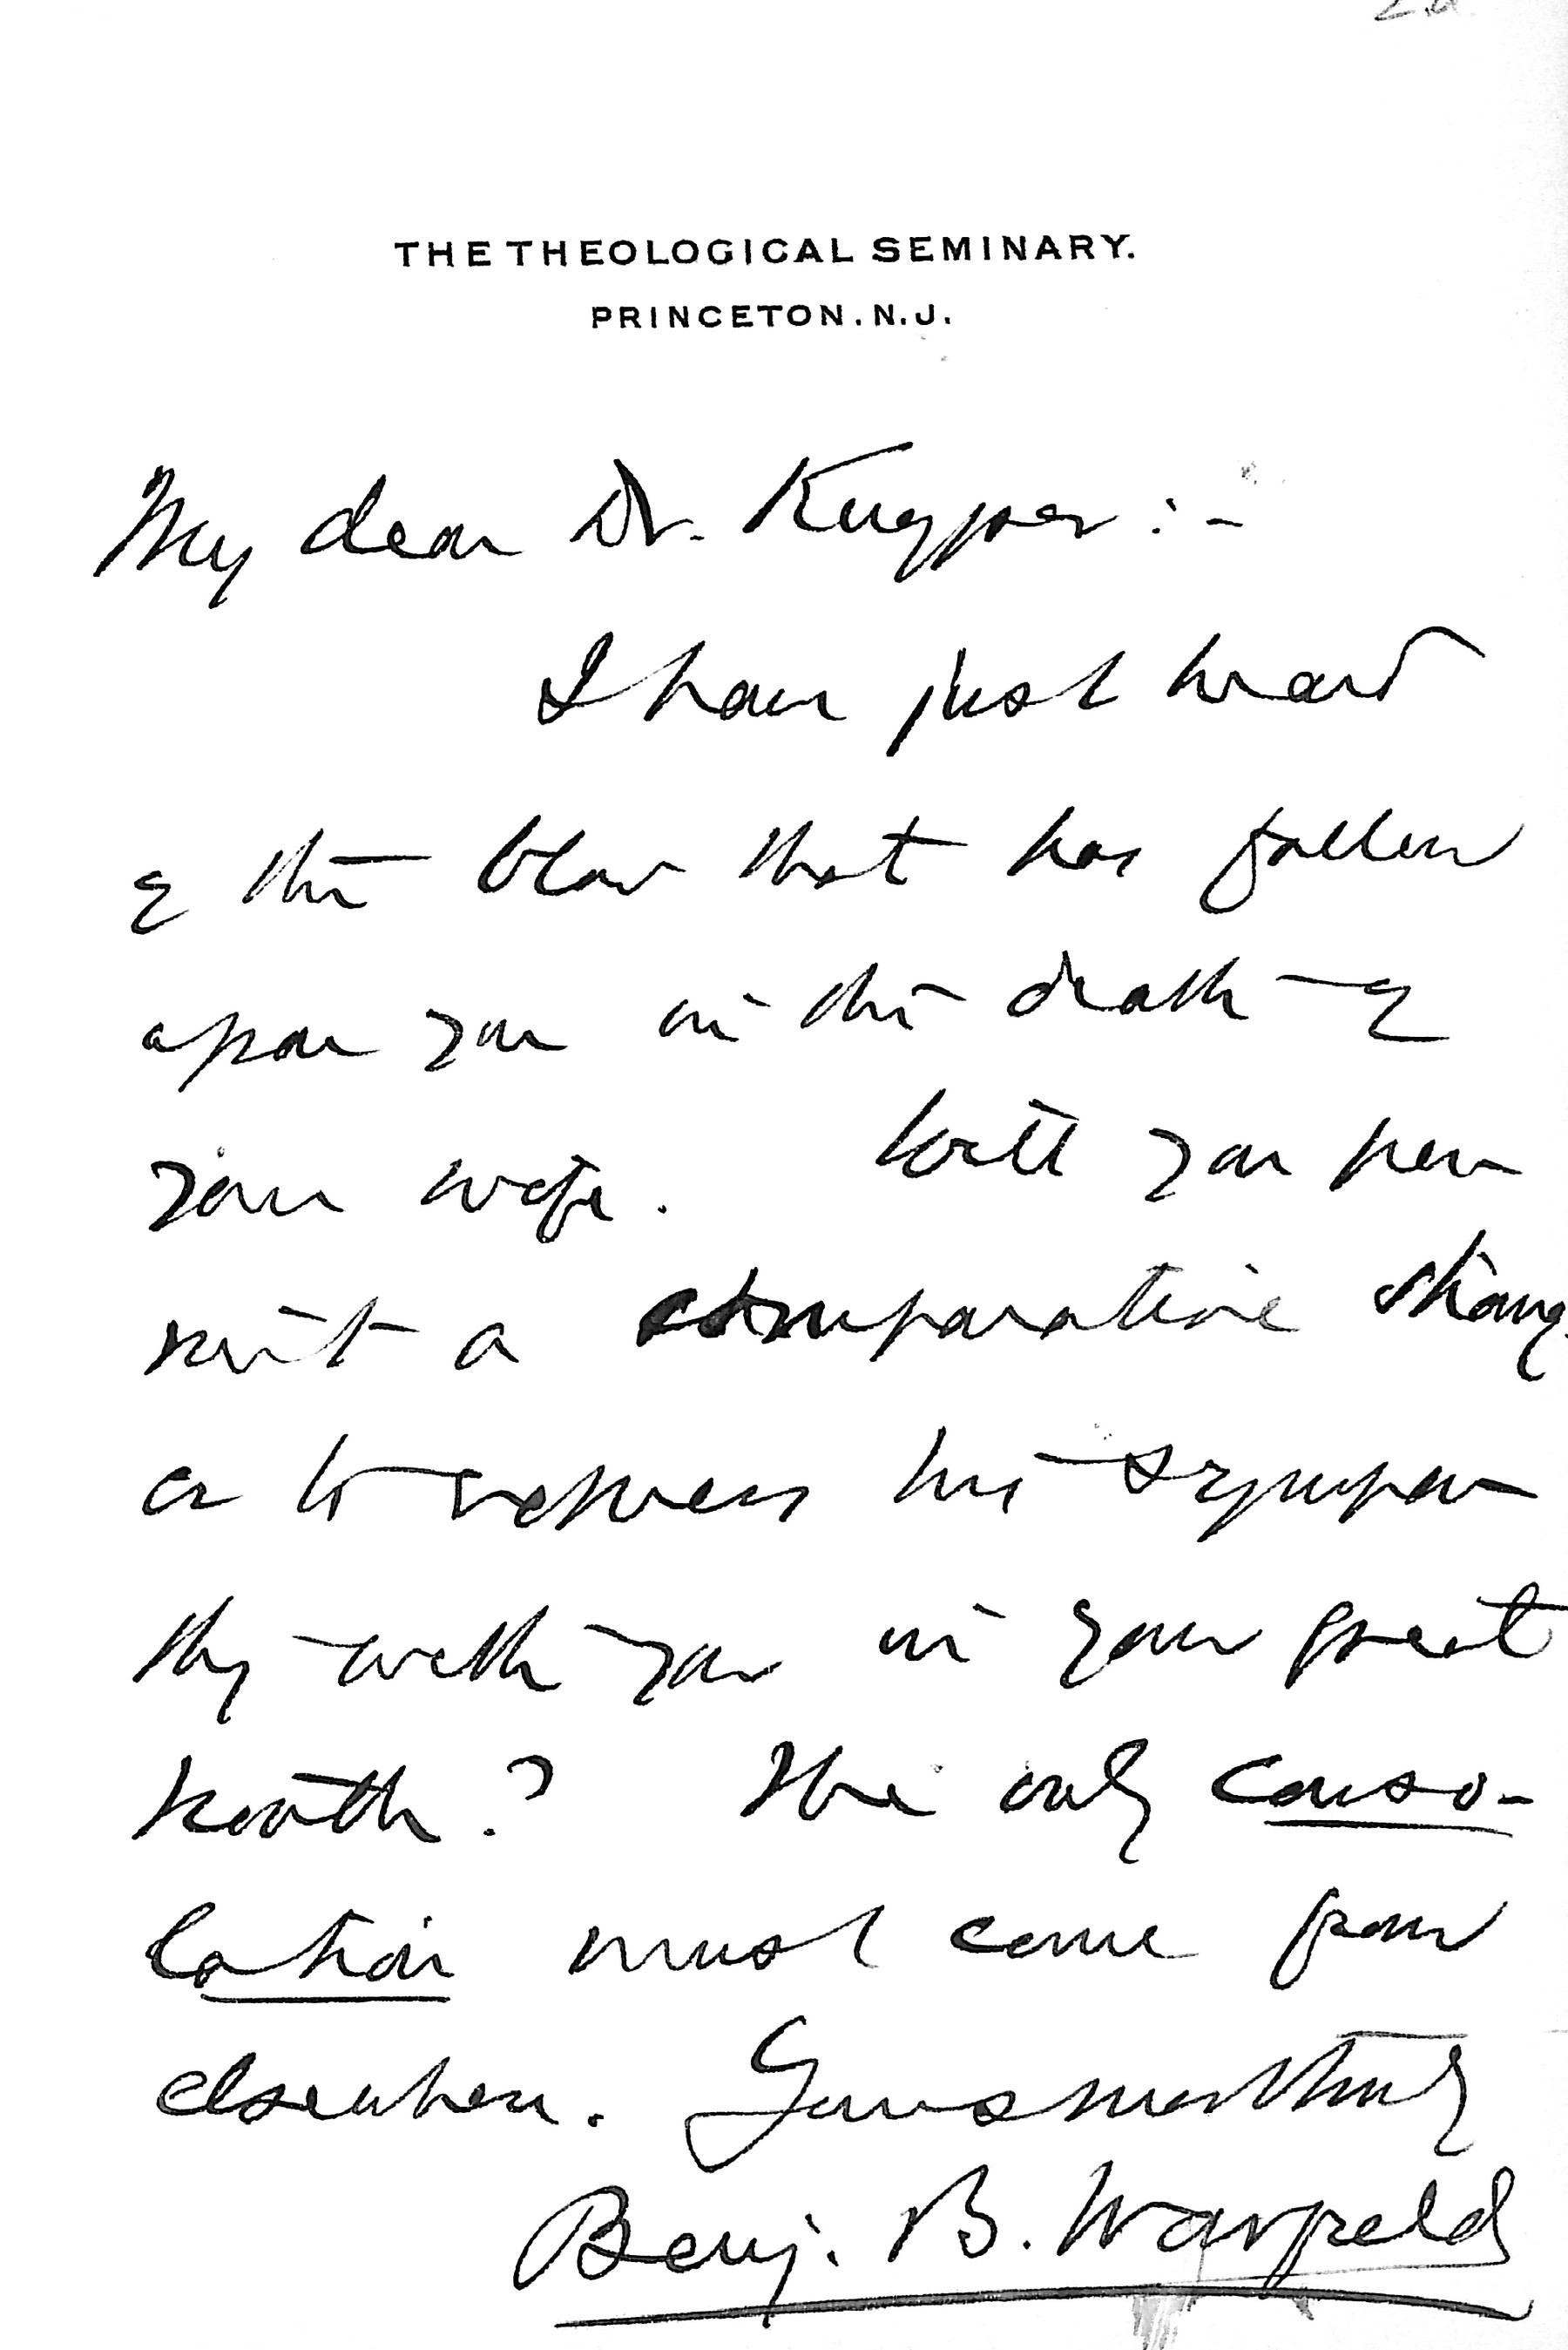 THE THEOLOGICAL SEMINARY.
PRINCETON. N. J.
My dear Dr. Kuyper :-
I have just heard
of the blow that has fallen
upon you in the death of
your wife. Will you per
mit a comparative strang-
er to express his sympa-
thy with you in your great
? The only conso-
lation must come from
elsewhere. Yours most truly
Benj. B. Warfield